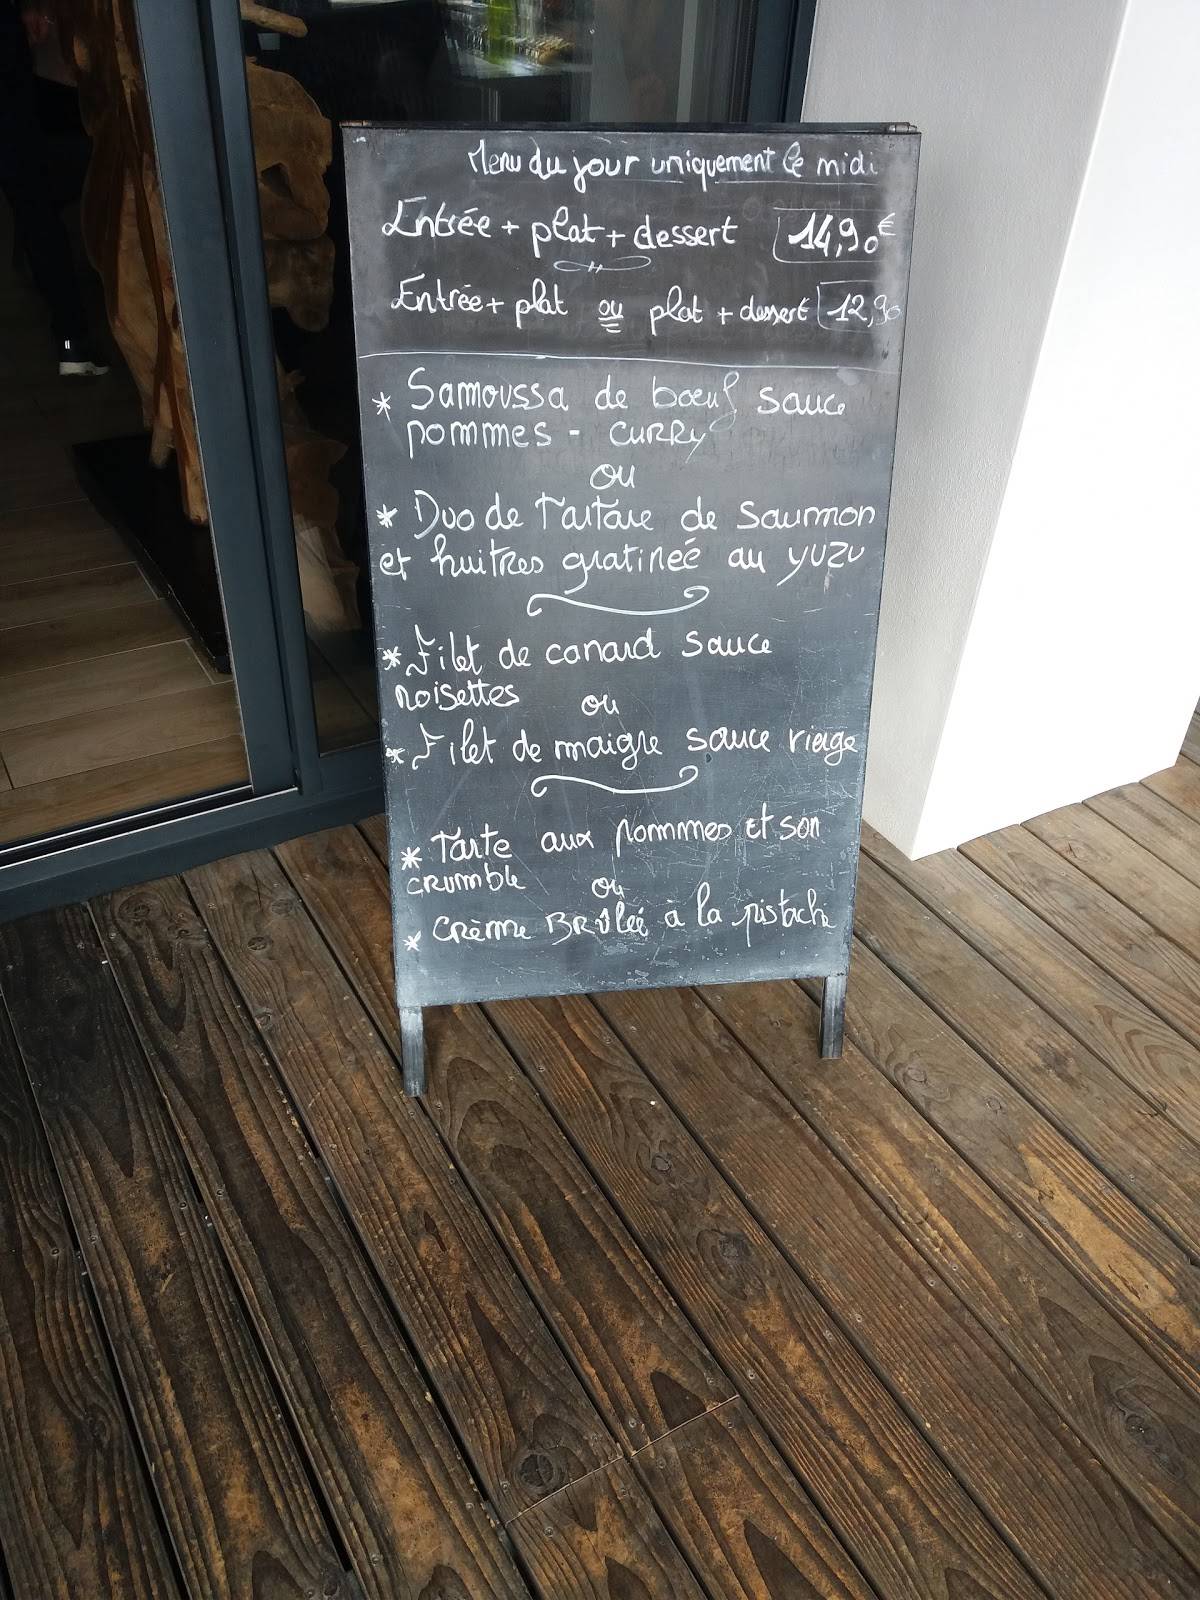 Menu du jour uniquement le midi
Entrée + plat + dessert 14,90€
Entrée + plat ou plat + dessert 12,90
* Samoussa de bœuf sauce
pommes - CURRY
ou
* Duo de Tartare de saumon
et huitres gratineé au yuzu
* Filet de canard sauce
noisettes ou
* Filet de maigre sauce vierge
* Tarte aux pommes et son
crumble ou
* Crème BRûleé à la pistache